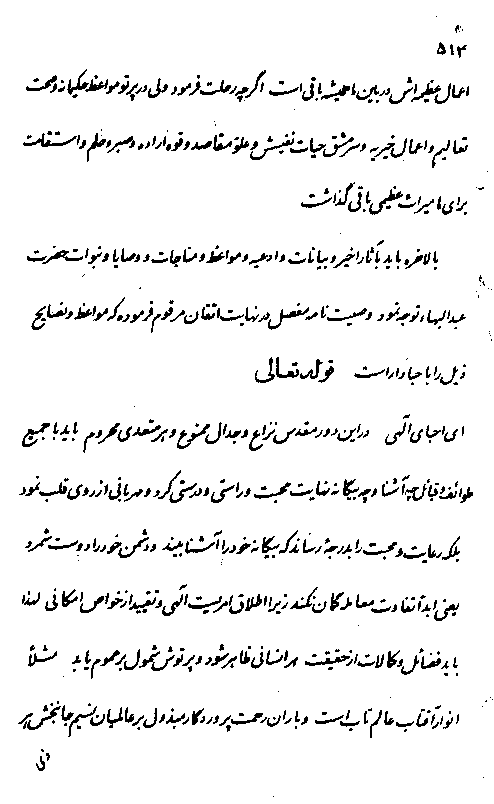 ۵۱۴
اعمال عظیمه‌اش در بین ما همیشه باقی است اگرچه رحلت فرمود ولی در پرتو مواعظ حکیمانه و صحت
تعالیم و اعمال خیریه و سرمشق حیات نفیسش و علو مقاصد و قوه اراده و صبر و حلم و استقامت
برای ما میراث عظیمی باقی گذاشت
بالاخره باید بآثار اخیر و بیانات و ادعیه و مواعظ و مناجات و وصایا و نبوات حضرت
عبدالبهاء توجه نمود وصیت نامه مفصل در نهایت اتقان مرقوم فرموده که مواعظ و نصایح
ذیل را باحبا داراست قوله تعالی
ای احبای آلهی در این دور مقدس نزاع و جدال ممنوع و هر متعدی محروم باید با جمیع
طوائف و قبائل چه آشنا و چه بیگانه نهایت محبت و راستی و درستی کرد و مهربانی از روی قلب نمود
بلکه رعایت و محبت را بدرجهٔ رساند که بیگانه خود را آشنا بیند و دشمن خود را دوست شمرد
یعنی ابداً تفاوت معامله گمان نکند زیرا اطلاق امریست آلهی و تقیید از خواص امکانی لهذا
باید فضائل و کمالات از حقیقت هر انسانی ظاهر شود و پرتوش شمول بر عموم یابد مثلاً
انوار آفتاب عالم تاب است و باران رحمت پروردگار مبذول بر عالمیان نسیم جانبخش هر
ذی